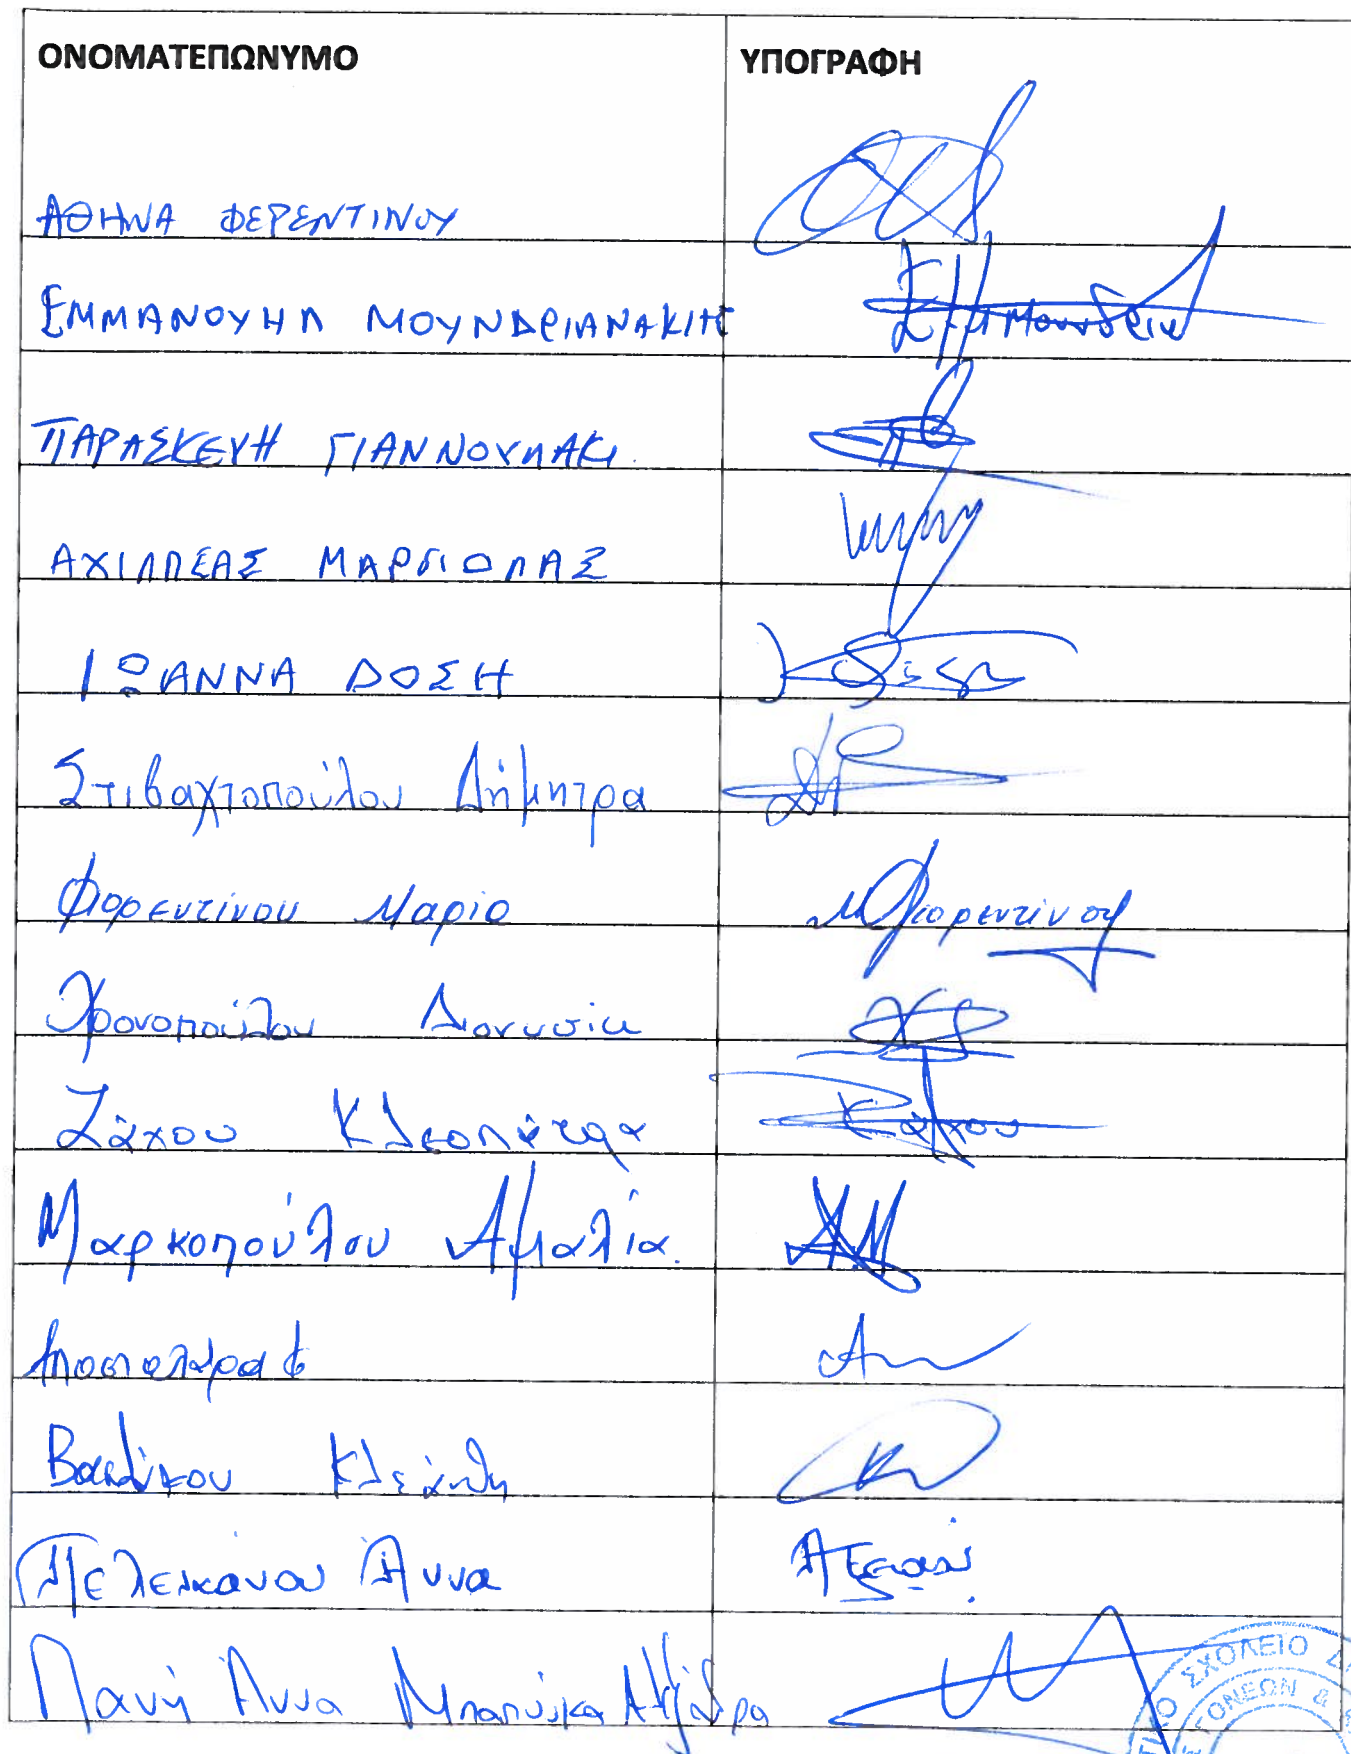 ΟΝΟΜΑΤΕΠΩΝΥΜΟ ΥΠΟΓΡΑΦΗ
ΑΘΗΝΑ ΦΕΡΕΝΤΙΝΟΥ
ΕΜΜΑΝΟΥΗΛ ΜΟΥΝΔΡΙΑΝΑΚΗΣ
ΠΑΡΑΣΚΕΥΗ ΓΙΑΝΝΟΥΛΑΚΙ
ΑΧΙΛΛΕΑΣ ΜΑΡΓΙΟΛΑΣ
ΙΩΑΝΝΑ ΔΟΣΗ
Στιβαχτοπούλου Δήμητρα
Φιορεντίνου Μαρία Μ Φιορεντίνου
Χρονοπούλου Διονυσία
Ζάχου Κλεοπάτρα Κ Ζάχου
Μαρκοπούλου Αμαλία Α.Μ
Κλεάνθη
Πελεκάνου Άννα
Πανή Άννα Μπαπύικα
ΣΧΟΛΕΙΟ
ΓΟΝΕΩΝ &